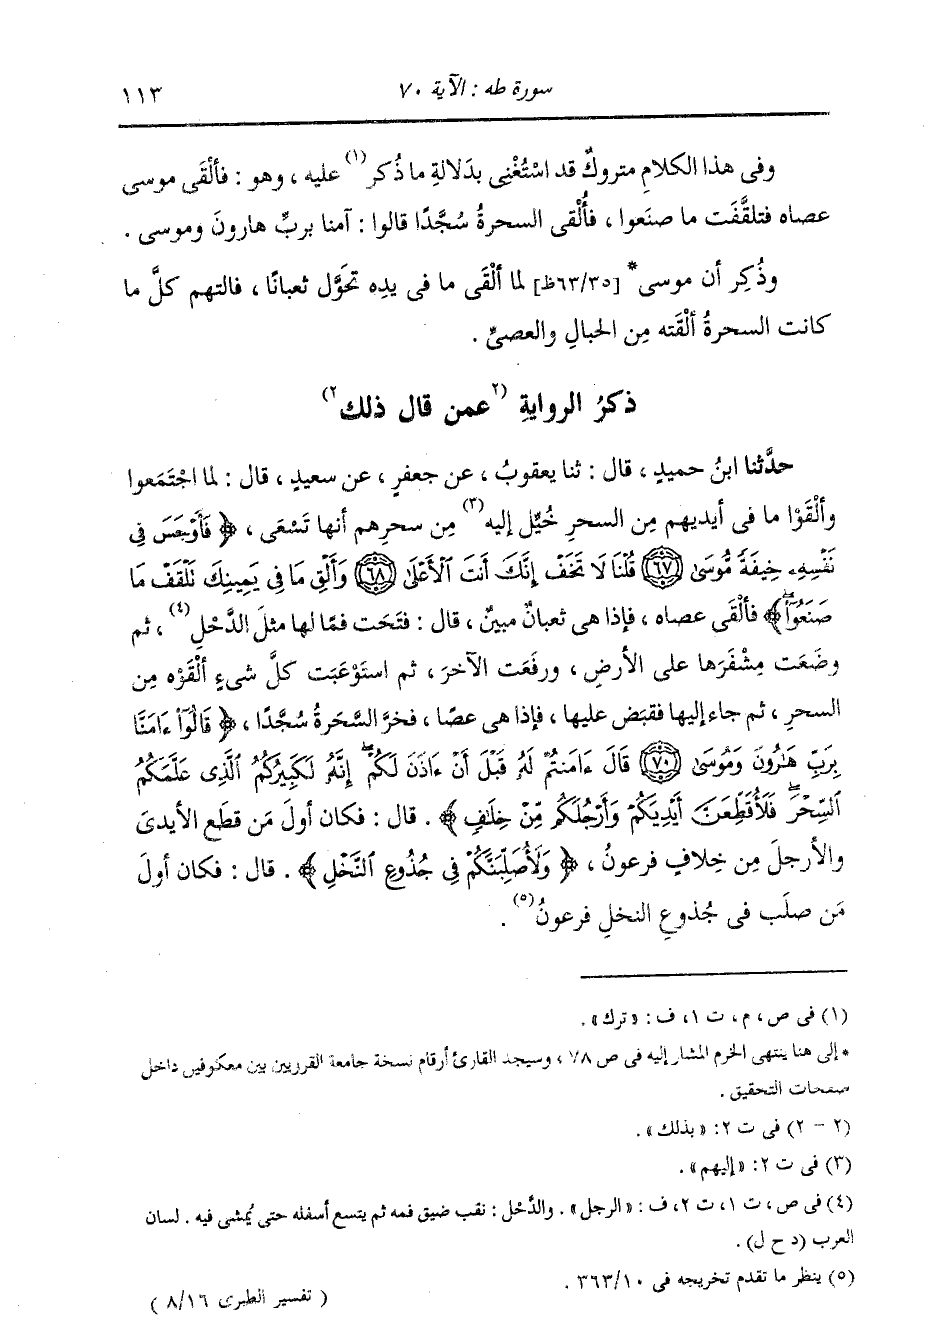 سورة طه : الآية ٧٠
١١٣
وفى هذا الكلامِ متروكٌ قد اسْتُغْنِى بدَلالةِ ما ذُكر(١) عليه ، وهو : فأَلْقَى موسى
عصاه فتلقَّفَت ما صنَعوا ، فأُلْقى السحرةُ سُجَّدًا قالوا : آمنا بربِّ هارونَ وموسى .
وذُكِر أن موسى* [٦٣/٣٥ظ] لما ألْقَى ما فى يدِه تحَوَّل ثعبانًا ، فالتهم كلَّ ما
كانت السحرةُ ألْقَته مِن الحبالِ والعصىِّ .
ذكرُ الروايةِ (٢عمن قال ذلك٢)
حدَّثنا ابنُ حميدٍ ، قال : ثنا يعقوبُ ، عن جعفرٍ ، عن سعيدٍ ، قال : لما اجْتَمَعوا
وألْقَوْا ما فى أيديهم مِن السحرِ خُيِّل إليه(٣) مِن سحرِهم أنها تَسْعَى ، ﴿ فَأَوْجَسَ فِى
نَفْسِهِۦ خِيفَةً مُّوسَىٰ ﴿٦٧﴾ قُلْنَا لَا تَخَفْ إِنَّكَ أَنتَ ٱلْأَعْلَىٰ ﴿٦٨﴾ وَأَلْقِ مَا فِى يَمِينِكَ تَلْقَفْ مَا
صَنَعُوٓا۟ ﴾ فألْقَى عصاه ، فإذا هى ثعبانٌ مبينٌ ، قال : فتَحَت فمًا لها مثلَ الدَّحْلِ(٤) ، ثم
وضَعَت مِشْفَرَها على الأرضِ ، ورفَعَت الآخرَ ، ثم استَوْعَبَت كلَّ شىءٍ ألْقَوْه مِن
السحرِ ، ثم جاء إليها فقبَض عليها ، فإذا هى عصًا ، فخرَّ السَّحَرةُ سُجَّدًا ، ﴿ قَالُوٓا۟ ءَامَنَّا
بِرَبِّ هَـٰرُونَ وَمُوسَىٰ ﴿٧٠﴾ قَالَ ءَامَنتُمْ لَهُۥ قَبْلَ أَنْ ءَاذَنَ لَكُمْ إِنَّهُۥ لَكَبِيرُكُمُ ٱلَّذِى عَلَّمَكُمُ
ٱلسِّحْرَ فَلَأُقَطِّعَنَّ أَيْدِيَكُمْ وَأَرْجُلَكُم مِّنْ خِلَـٰفٍ ﴾ . قال : فكان أولَ مَن قطَع الأيدىَ
والأرجلَ مِن خِلافٍ فرعونُ ، ﴿ وَلَأُصَلِّبَنَّكُمْ فِى جُذُوعِ ٱلنَّخْلِ ﴾ . قال : فكان أولَ
مَن صلَب فى جُذوعِ النخلِ فرعونُ(٥) .
(١) فى ص، م، ت ١، ف : «ترك» .
* إلى هنا ينتهى الخرم المشار إليه فى ص ٧٨ ، وسيجد القارئ أرقام نسخة جامعة القرويين بين معكوفين داخل
صفحات التحقيق .
(٢ - ٢) فى ت ٢: «بذلك» .
(٣) فى ت ٢: «إليهم» .
(٤) فى ص، ت ١، ت ٢، ف : «الرجل» . والدَّحْل : نقب ضيق فمه ثم يتسع أسفله حتى يُمشى فيه . لسان
العرب (د ح ل) .
(٥) ينظر ما تقدم تخريجه فى ٣٦٣/١٠ .
( تفسير الطبرى ٨/١٦ )